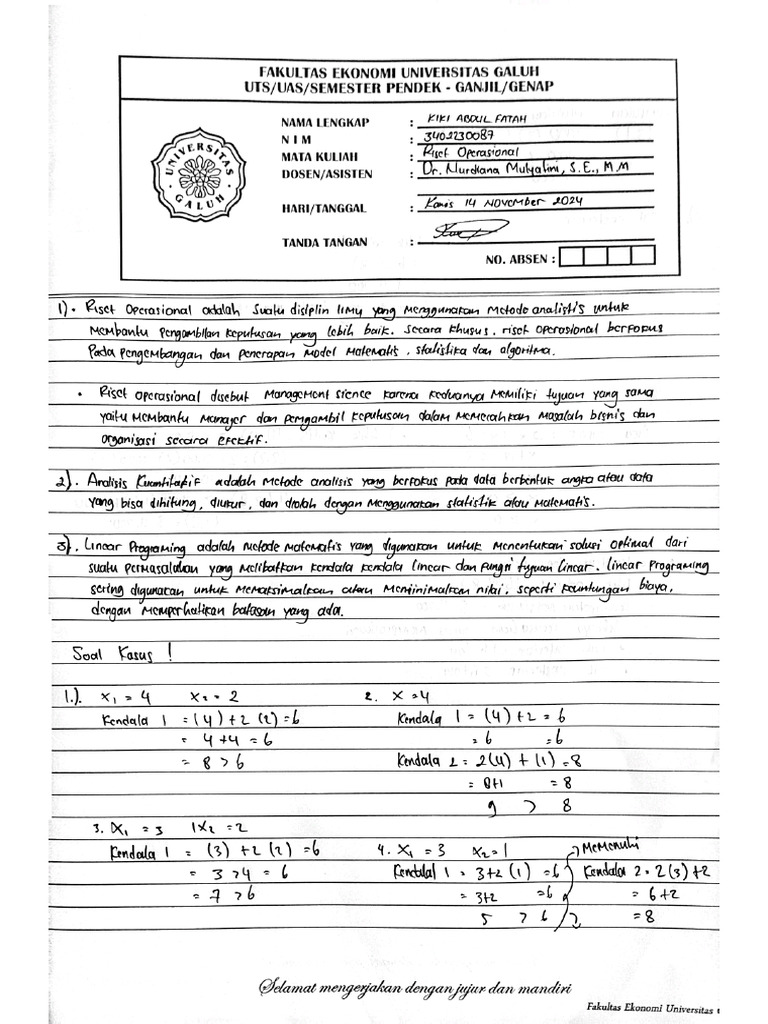 FAKULTAS EKONOMI UNIVERSITAS GALUH
UTS/UAS/SEMESTER PENDEK - GANJIL/GENAP
UNIVERSITAS GALUH
NAMA LENGKAP : KIKI ABDUL FATAH
N I M : 3402230087
MATA KULIAH : Riset Operasional
DOSEN/ASISTEN : Dr. Nurdiana Mulyatini, S.E., M.M
HARI/TANGGAL : Kamis 14 November 2024
TANDA TANGAN :
NO. ABSEN :
1). • Riset Operasional adalah suatu disiplin ilmu yang menggunakan metode analistis untuk
membantu pengambilan keputusan yang lebih baik. secara khusus, riset operasional berfokus
pada pengembangan dan penerapan model matematis, statistika dan algoritma.
• Riset operasional disebut Management sience karena keduanya memiliki tujuan yang sama
yaitu membantu manager dan pengambil keputusan dalam memecahkan masalah bisnis dan
organisasi secara efektif.
2). Analisis Kuantitatif adalah metode analisis yang berfokus pada data berbentuk angka atau data
yang bisa dihitung, diukur, dan diolah dengan menggunakan statistik atau matematis.
3). Linear Programing adalah metode matematis yang digunakan untuk menentukan solusi optimal dari
suatu permasalahan yang melibatkan kendala kendala linear dan fungsi tujuan linear. linear programing
sering digunakan untuk memaksimalkan atau meminimalkan nilai, seperti keuntungan biaya,
dengan memperhatikan batasan yang ada.
Soal Kasus !
1.). X₁ = 4 X₂ = 2
Kendala 1 = (4) + 2 (2) = 6
= 4 + 4 = 6
= 8 > 6
2. X = 4
Kendala 1 = (4) + 2 = 6
= 6 = 6
Kendala 2 = 2(4) + (1) = 8
= 8+1 = 8
9 > 8
3. X₁ = 3 1X₂ = 2
Kendala 1 = (3) + 2 (2) = 6
= 3 > 4 = 6
= 7 > 6
4. X₁ = 3 X₂ = 1
Kendala 1 = 3+2 (1) = 6
= 3+2 = 6
5 > 6
Memenuhi
Kendala 2 = 2(3) + 2
= 6+2
= 8
Selamat mengerjakan dengan jujur dan mandiri
Fakultas Ekonomi Universitas